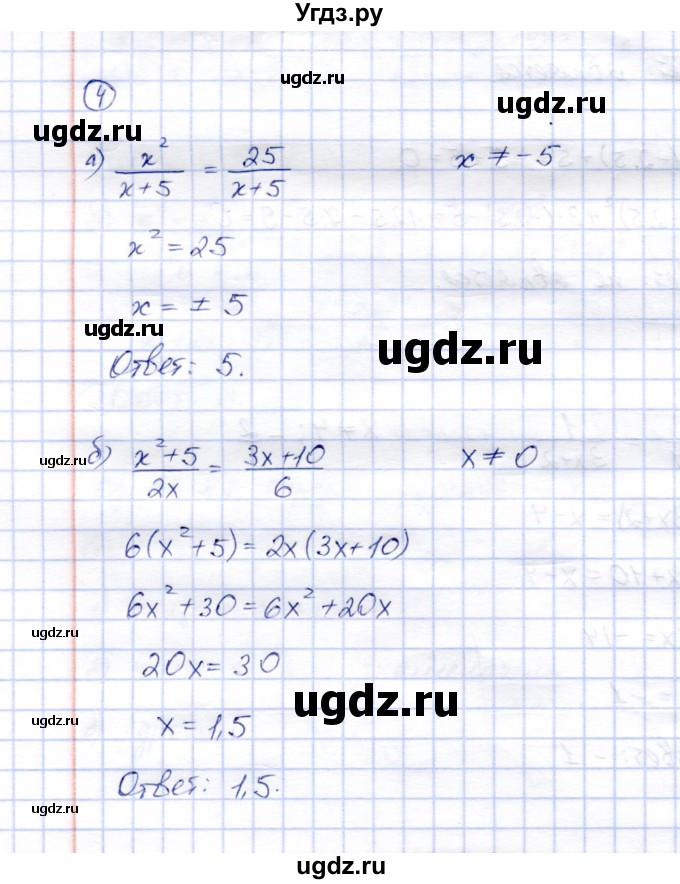 Угдз.ру
ugdz.ru
4
ugdz.ru ugdz.ru
а) x²/(x+5) = 25/(x+5) x ≠ -5
x² = 25
x = ± 5
ugdz.ru ugdz.ru
Ответ: 5.
ugdz.ru
б) (x²+5)/2x = (3x+10)/6 x ≠ 0
6(x²+5) = 2x(3x+10)
6x²+30 = 6x²+20x
ugdz.ru
20x = 30
ugdz.ru
ugdz.ru
x = 1,5
Ответ: 1,5.
ugdz.ru
ugdz.ru